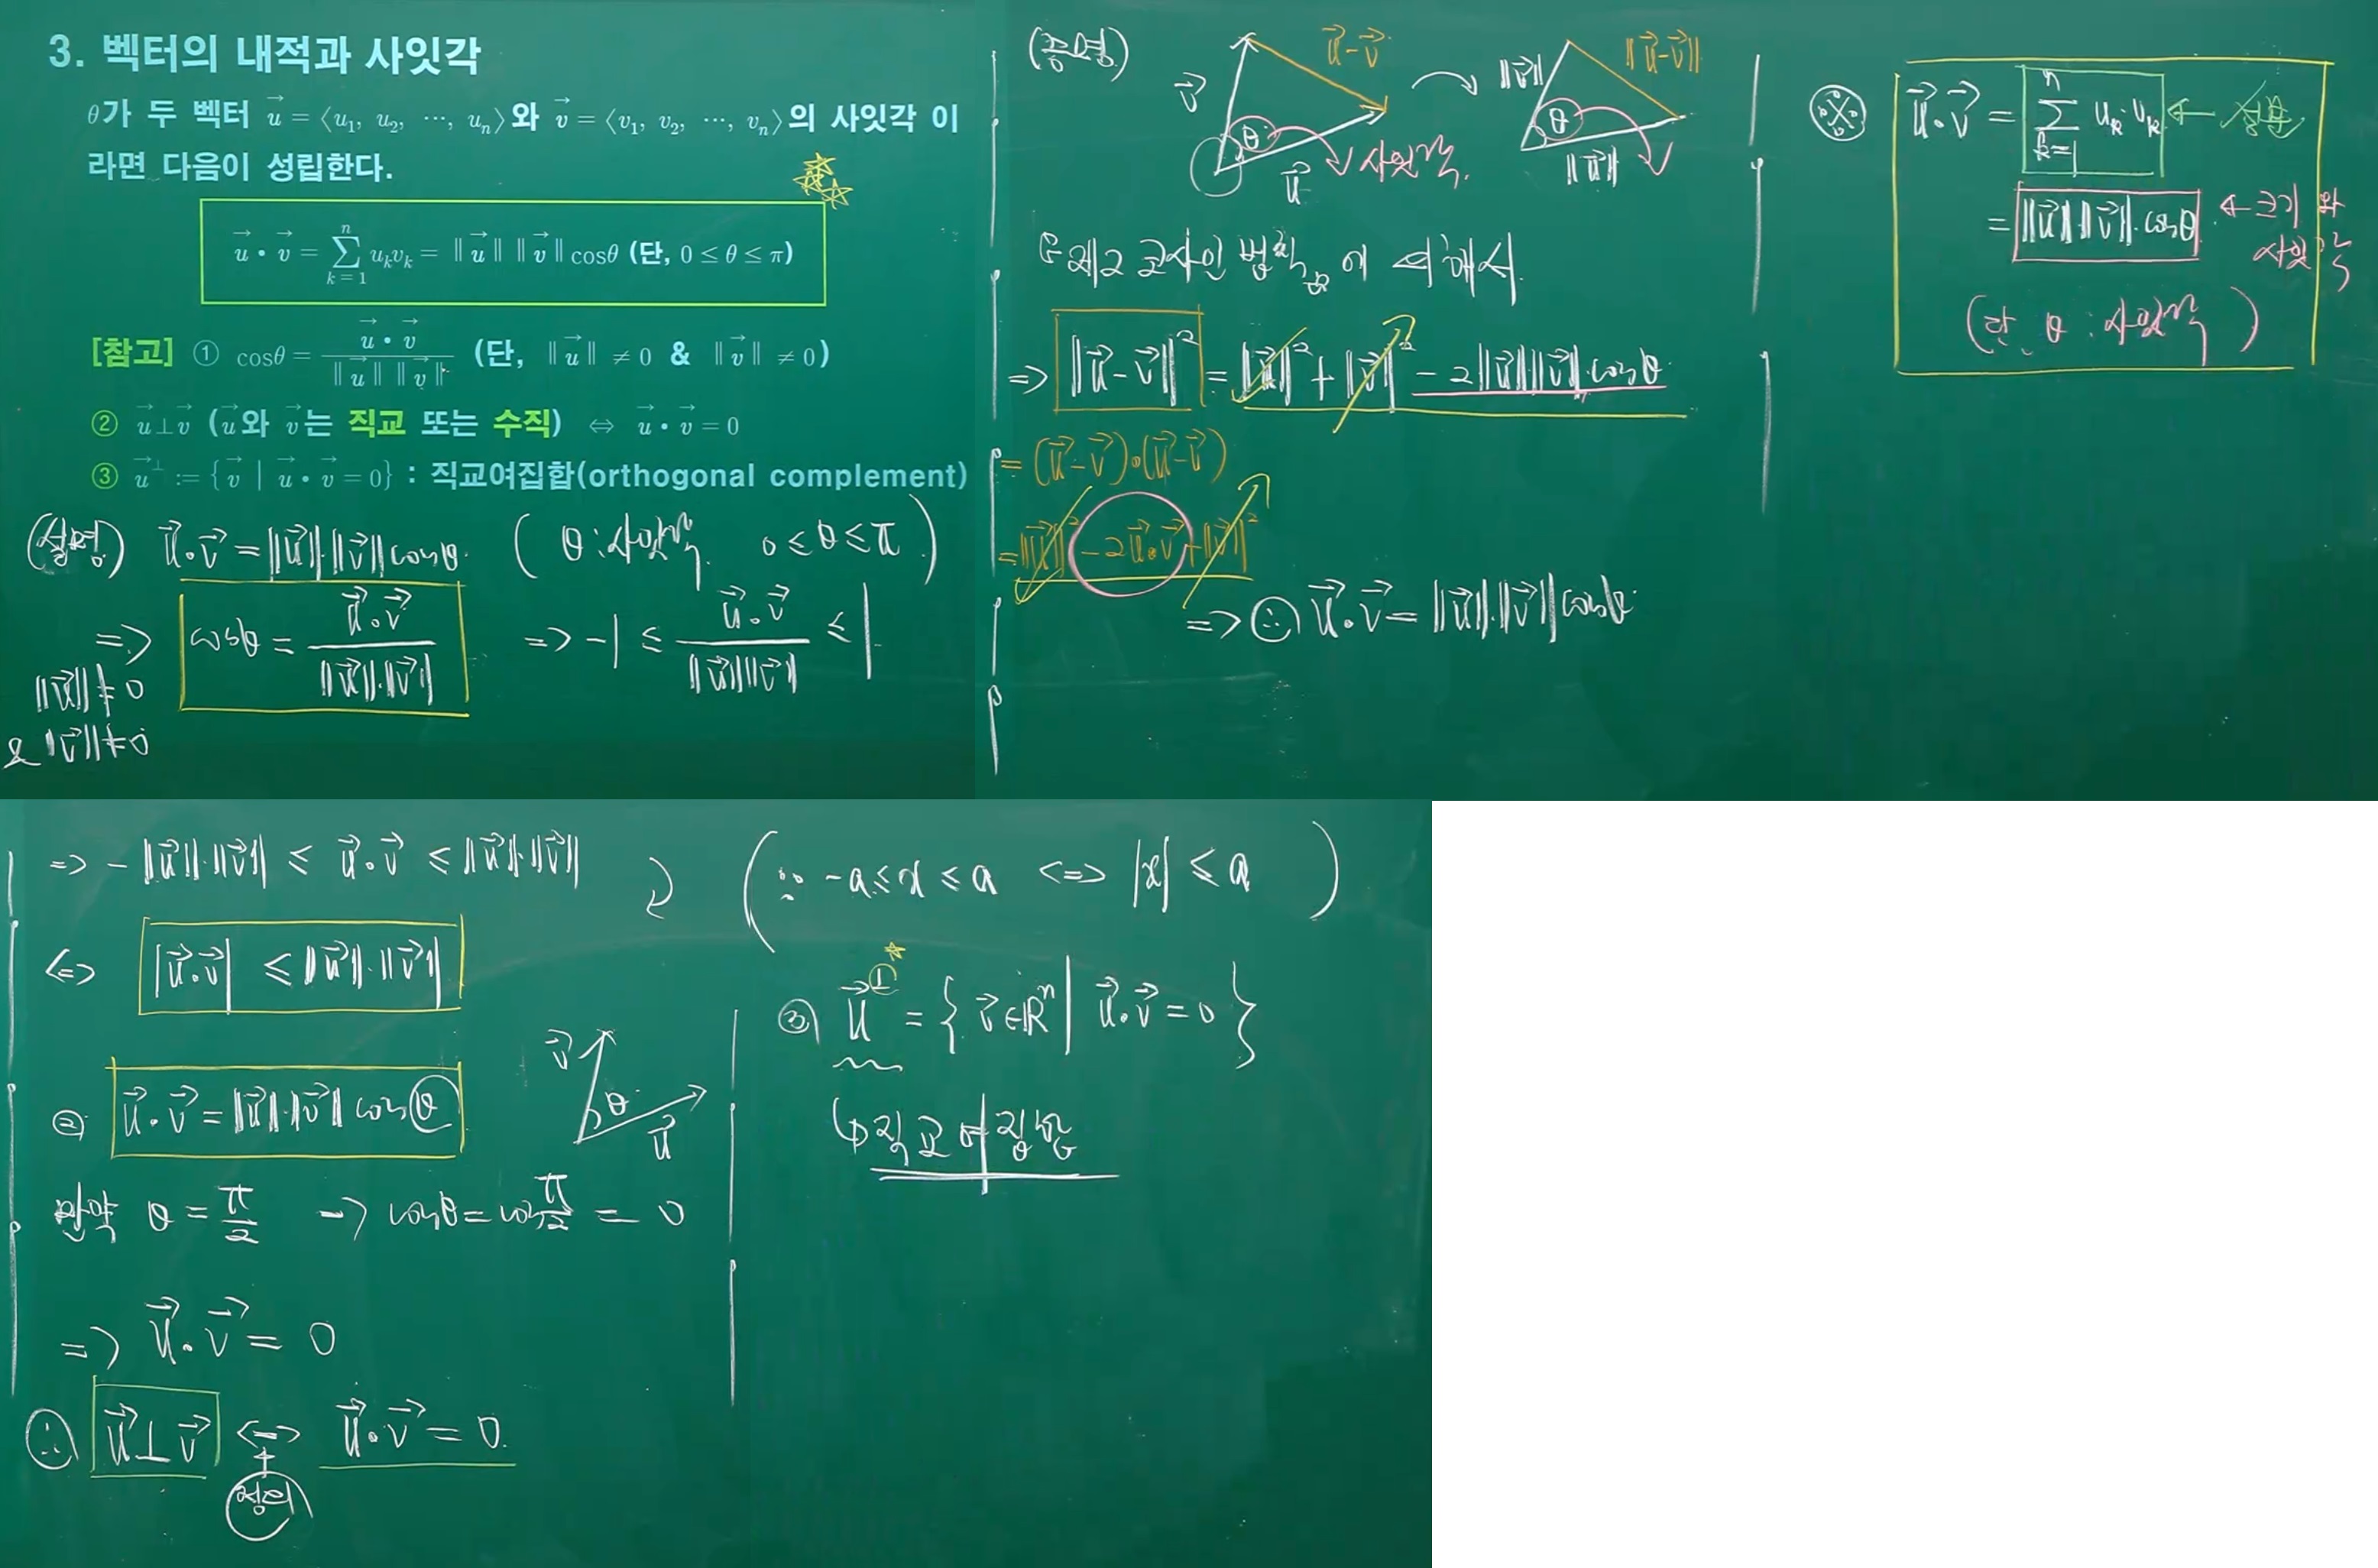 3. 벡터의 내적과 사잇각
θ가 두 벡터 u⃗ = ⟨u₁, u₂, ⋯, uₙ⟩와 v⃗ = ⟨v₁, v₂, ⋯, vₙ⟩의 사잇각 이
라면 다음이 성립한다.
u⃗ • v⃗ = ∑ₖ₌₁ⁿ uₖvₖ = ‖u⃗‖ ‖v⃗‖ cosθ (단, 0 ≤ θ ≤ π)
[참고] ① cosθ = (u⃗ • v⃗) / (‖u⃗‖ ‖v⃗‖) (단, ‖u⃗‖ ≠ 0 & ‖v⃗‖ ≠ 0)
② u⃗⊥v⃗ (u⃗와 v⃗는 직교 또는 수직) ⇔ u⃗ • v⃗ = 0
③ u⃗^⊥ := {v⃗ | u⃗ • v⃗ = 0} : 직교여집합(orthogonal complement)
(설명) u⃗•v⃗ = ‖u⃗‖•‖v⃗‖cosθ. (θ : 사잇각. 0 ≤ θ ≤ π)
=> cosθ = (u⃗•v⃗) / (‖u⃗‖•‖v⃗‖) => -1 ≤ (u⃗•v⃗) / (‖u⃗‖‖v⃗‖) ≤ 1
‖u⃗‖ ≠ 0
& ‖v⃗‖ ≠ 0
(증명)
v⃗ u⃗-v⃗ θ u⃗ 사잇각.
‖v⃗‖ ‖u⃗-v⃗‖ θ ‖u⃗‖
제2 코사인 법칙에 의해서
=> ‖u⃗-v⃗‖² = ‖u⃗‖² + ‖v⃗‖² - 2‖u⃗‖‖v⃗‖•cosθ
= (u⃗-v⃗)•(u⃗-v⃗)
= ‖u⃗‖² - 2u⃗•v⃗ + ‖v⃗‖²
=> ∴ u⃗•v⃗ = ‖u⃗‖•‖v⃗‖cosθ
※ u⃗•v⃗ = ∑ₖ₌₁ⁿ uₖ•vₖ ← 성분
= ‖u⃗‖•‖v⃗‖•cosθ ← 크기와
사잇각
(단, θ : 사잇각)
=> -‖u⃗‖•‖v⃗‖ ≤ u⃗•v⃗ ≤ ‖u⃗‖•‖v⃗‖ (∵ -a ≤ x ≤ a <=> |x| ≤ a)
<=> |u⃗•v⃗| ≤ ‖u⃗‖•‖v⃗‖
② u⃗•v⃗ = ‖u⃗‖•‖v⃗‖cosθ
v⃗ θ u⃗
만약 θ = π/2 -> cosθ = cos π/2 = 0
=> u⃗•v⃗ = 0
∴ u⃗⊥v⃗ <=> u⃗•v⃗ = 0.
정의
③ u⃗^⊥ = {v⃗∈ℝⁿ | u⃗•v⃗ = 0}
↳ 직교여집합